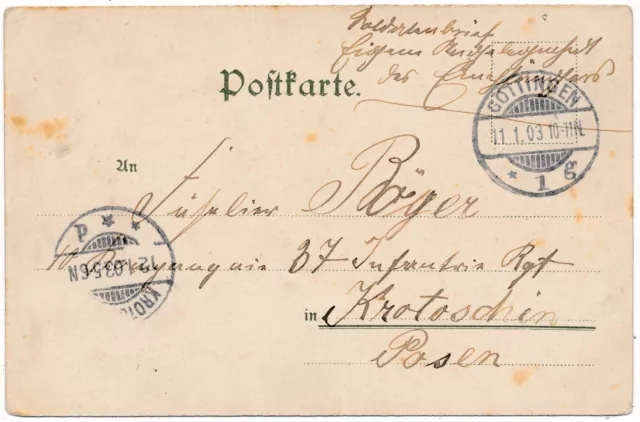 Soldatenbrief
Eigene Angelegenheit
des Empfängers
Postkarte.
GÖTTINGEN
11.1.03.10-11N.
* 1 g
An
Füselier Röger
11 Kompagnie 37 Infantrie Rgt
in Krotoschin
Posen
P * *
12.1.03.5-6N
KROTO